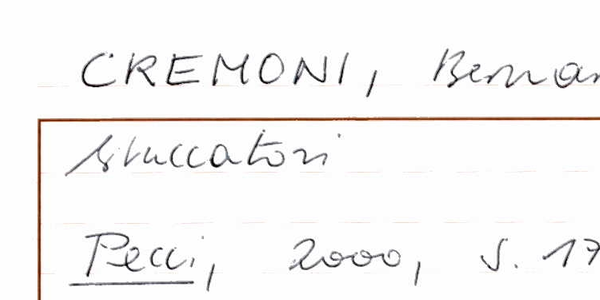 CREMONI, Bernar
Stuccatori
Pecci, 2000, S. 17